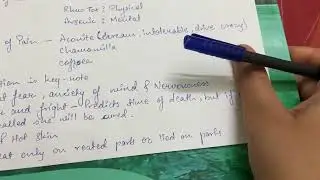 Rhus Tox : Physical
Arsenic : Mental
of Pain — Aconite (scream, intolerable, drive crazy)
Chamomilla
coffea
tion is key-note
t fear, anxiety of mind & Nervousness
and fright - Predicts time of death, but if
called one will be cured.
f Hot Skin
eat only on rested parts or lied on parts.